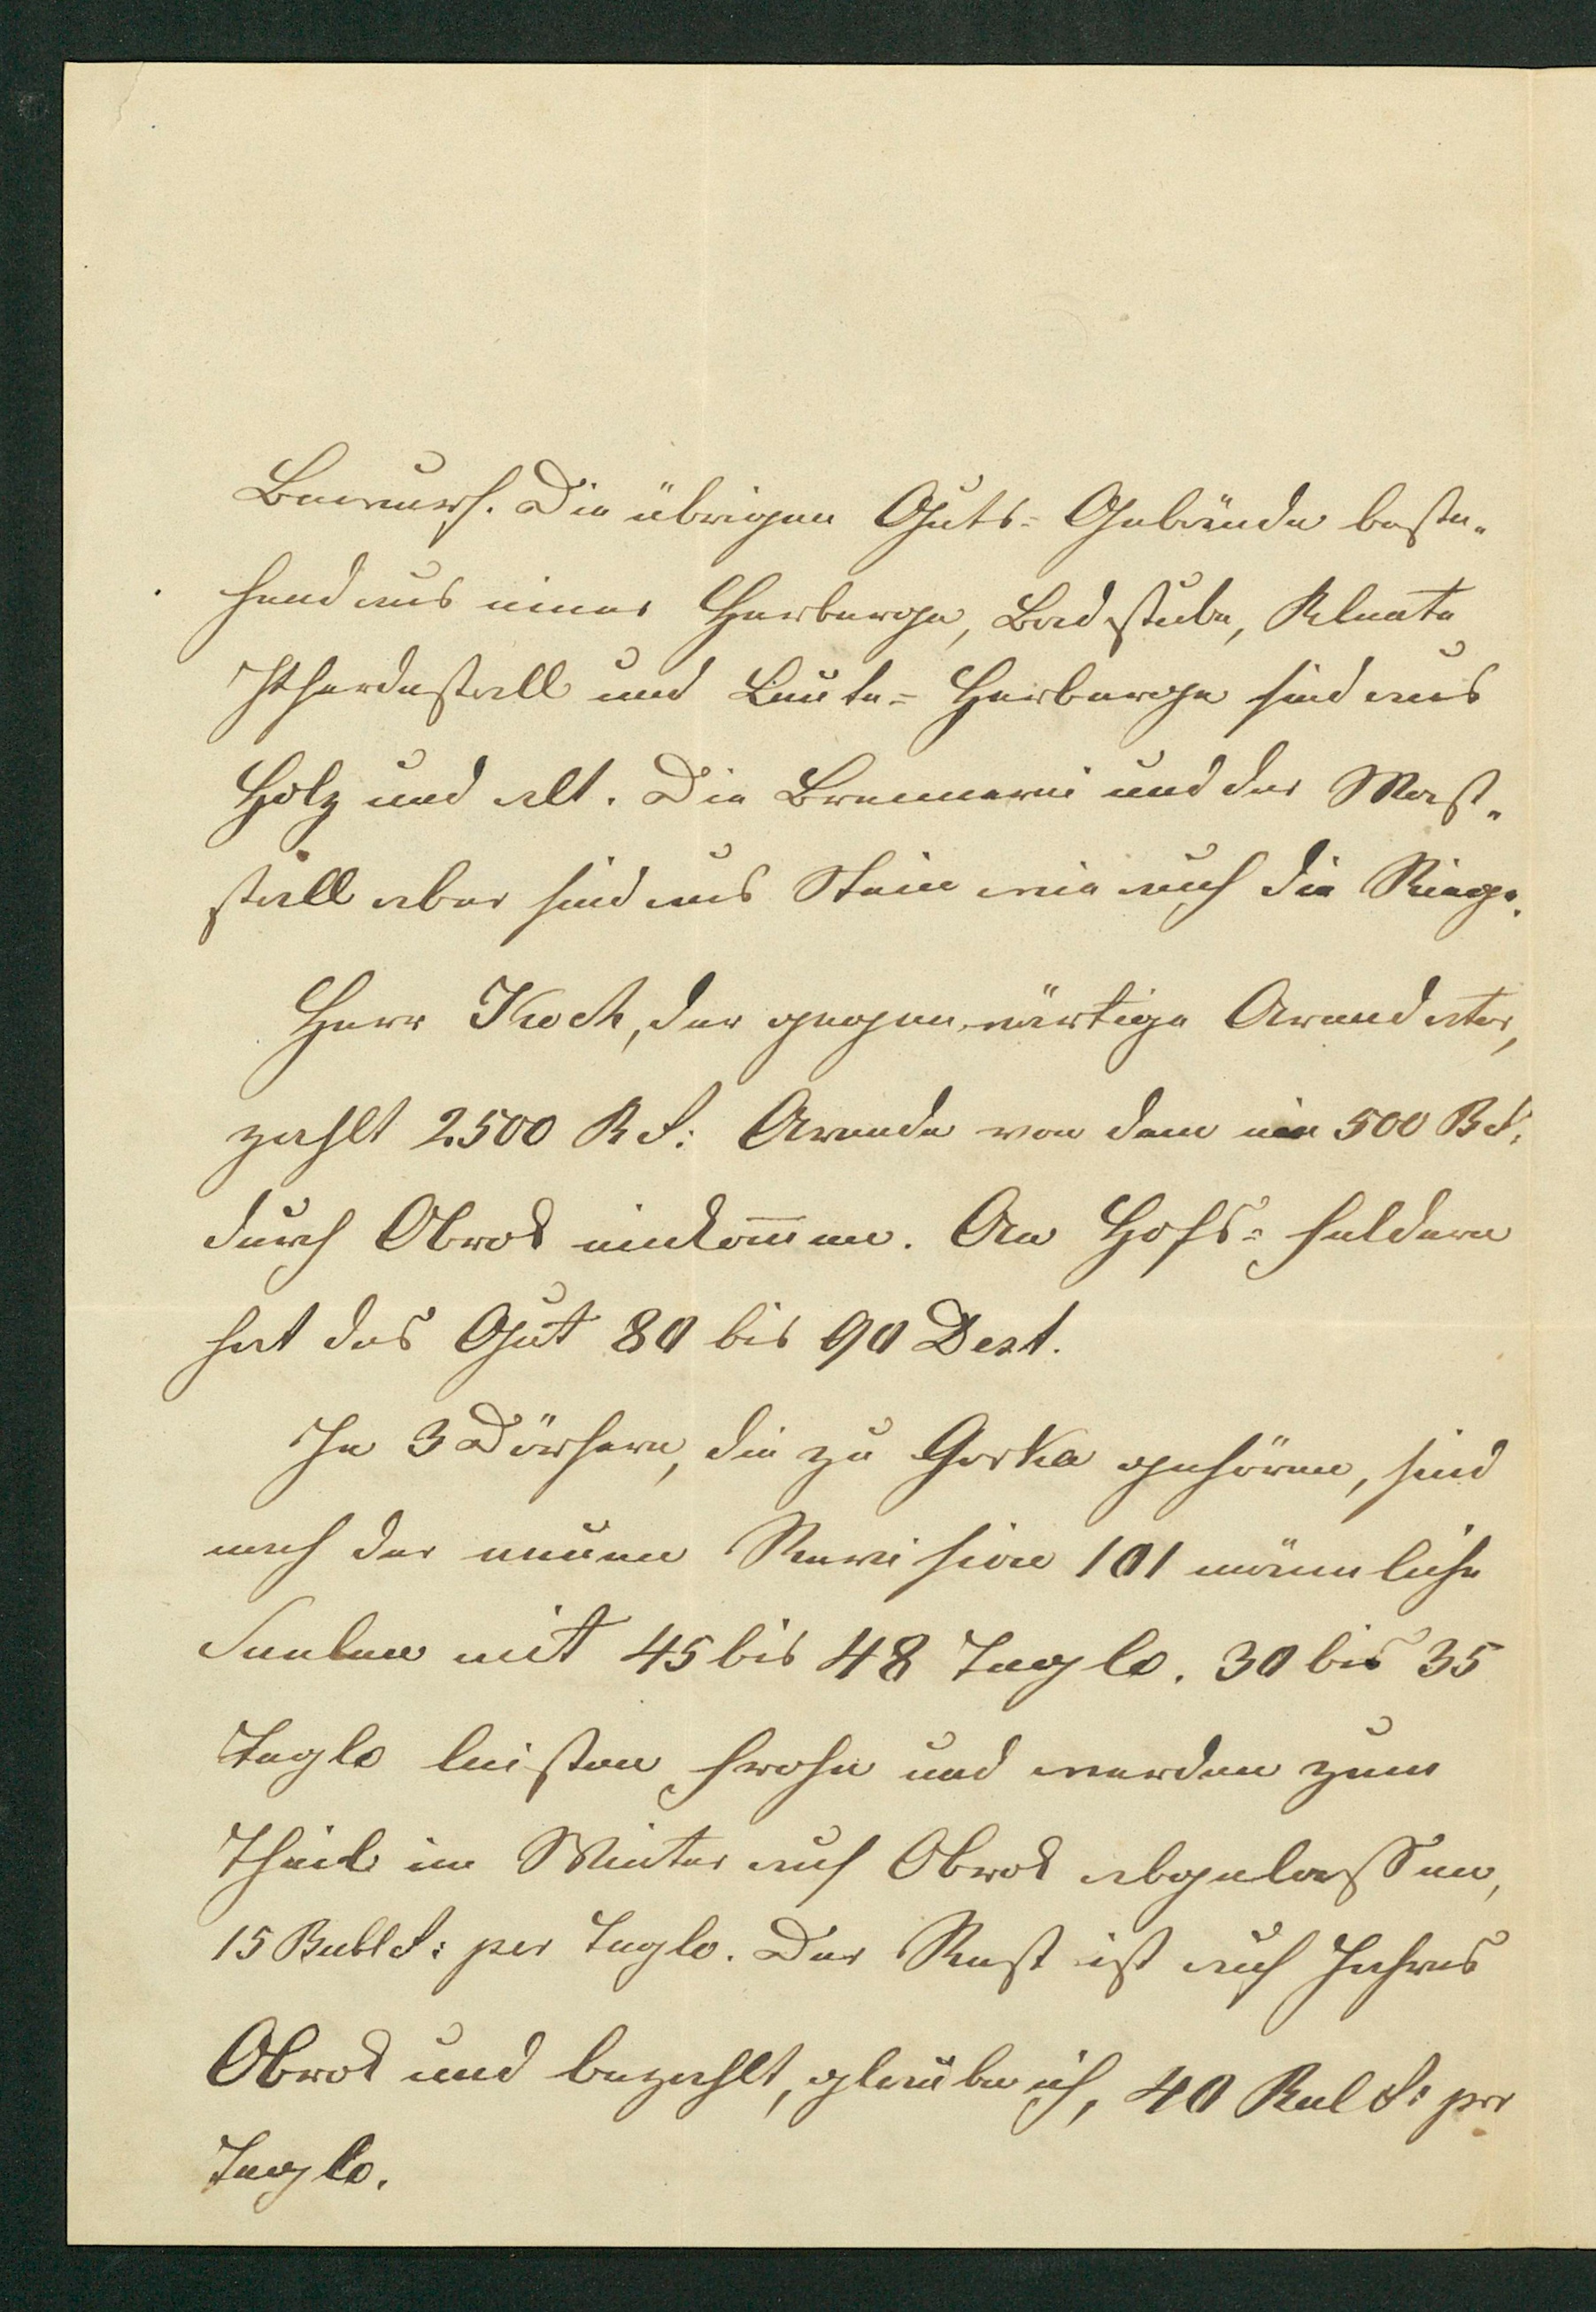 Bewurf. Die übrigen Guts-Gebäude beste-
hend aus einer Herberge, Badstube, Kleete
Pferdestall und Leute-Herberge sind aus
Holz und alt. Die Brennerei und der Mast-
stall aber sind aus Stein wie auch die Riege.
Herr Koch, der gegenwärtige Arendator,
zahlt 2500 R S: Arende von dem ein 500 R S:
durch Obrok einkommen. An Hofs-feldern
hat das Gut 80 bis 90 Dest.
In 3 Dörfern, die zu Gorka gehören, sind
nach der neuen Revision 101 männliche
Seelen mit 45 bis 48 Taglo. 30 bis 35
Taglo leisten Frohn und werden zum
Theil im Winter auf Obrok abgelassen,
15 Rubl S: per Taglo. Der Rest ist auf Jahres
Obrok und bezahlt, glaube ich, 40 Rub S: per
Taglo.